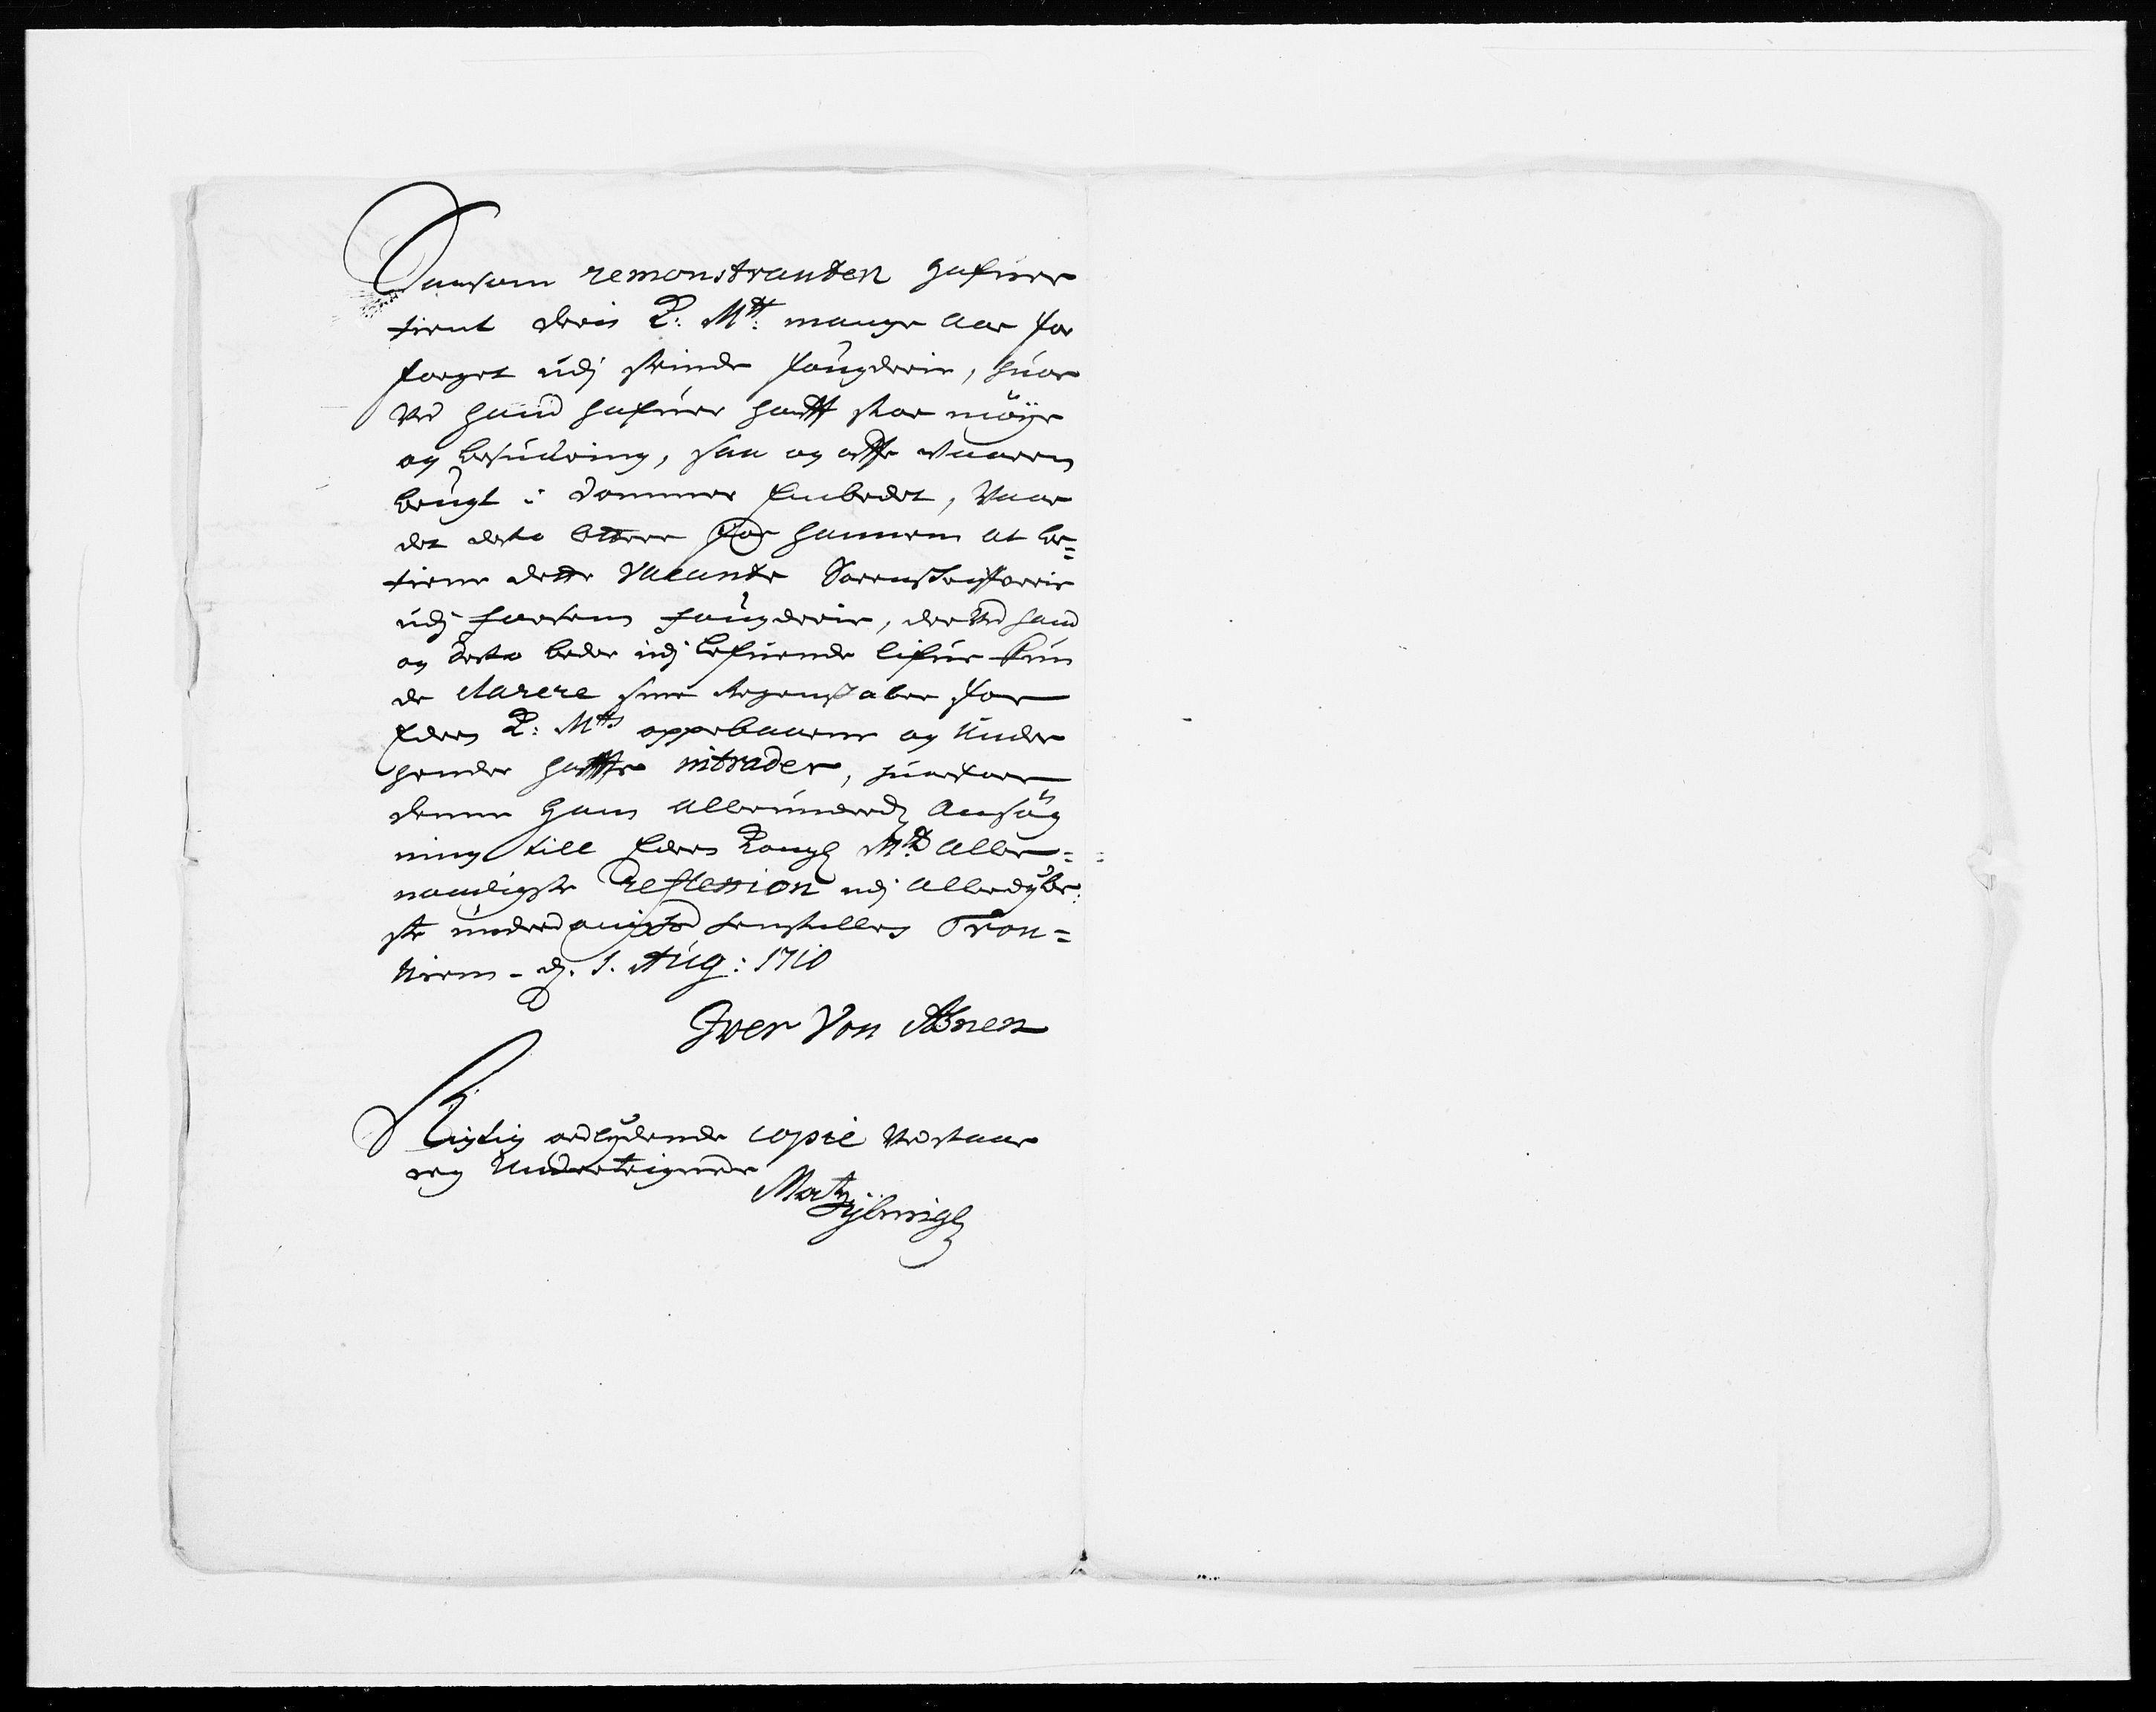 Saasom remonstranten hafuer
tient deris K: Mtt: mange Aar for
foeget udj strinde fougderie, huor
ved hand hafuer hafft stor möye
og besuering, saa og offte vaaren
brugt i dommer Embedet, Vaar
det desto lettere for hannem at be=
tiene dette Vacante Sorenskrifverie
udj fosens fougderie, der ved hand
og desto bedre udj lefuende lifue kun
de clarere sine Regenskaber for
Eders K: Mtts oppebaarne og Under
hender haffte intrader, huorfore
denne hans allerunderd. Ansög
ning till Eders Kongl Mtt Aller=
naadigste reflexion udj Allerdybe
ste underdanighed henstilles Tron=
hiem - d. 1. Aug: 1710
Iver Von Ahnen
Rigtig ordlydende copie vedstaar
ieg Underteignede